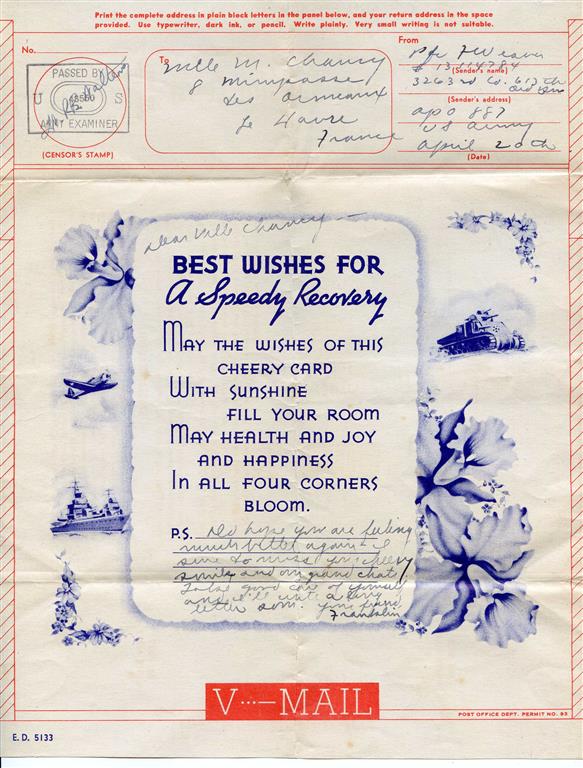 Print the complete address in plain block letters in the panel below, and your return address in the space
provided. Use typewriter, dark ink, or pencil. Write plainly. Very small writing is not suitable.
No.
PASSED BY
U S
ARMY EXAMINER
(CENSOR'S STAMP)
To
Mlle M. Chancy
8 Mimpasse
Les Ormeaux
Le Havre
France
From
Pfc F Weaver
# 13114784
(Sender's name)
3263rd Co. 617th
(Sender's address)
APO 887
US Army
April 20th
(Date)
Dear Mlle Chancy—
BEST WISHES FOR
A Speedy Recovery
MAY THE WISHES OF THIS
CHEERY CARD
WITH SUNSHINE
FILL YOUR ROOM
MAY HEALTH AND JOY
AND HAPPINESS
IN ALL FOUR CORNERS
BLOOM.
P.S. Do hope you are feeling
much better again. I
sure do miss your cheery
smile and our grand chats
Take good care of yourself
and I'll write a long
letter soon. Your friend
Franklin
V···— MAIL
POST OFFICE DEPT. PERMIT NO. 93
E.D. 5133